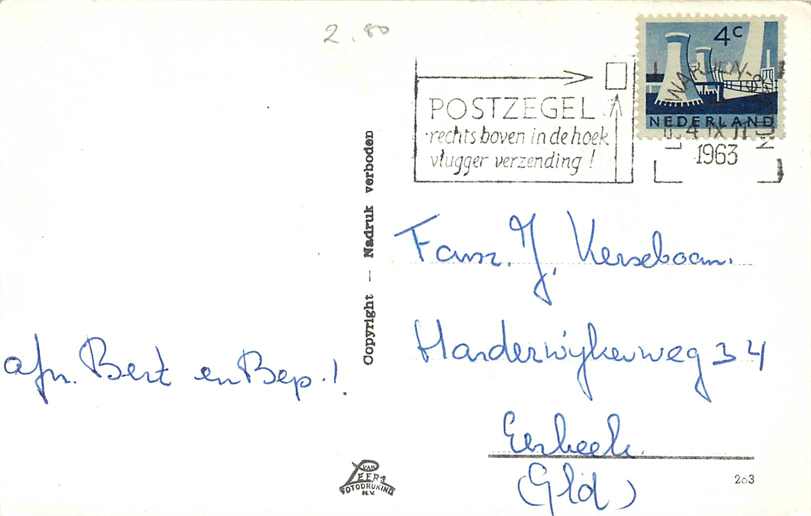 2.80
4c
NEDERLAND
POSTZEGEL
rechts boven in de hoek
vlugger verzending!
1963
Copyright — Nadruk verboden
Fam. J. Kerseboom.
Harderwijkerweg 34
Eerbeek.
(Gld)
afz. Bert en Bep.!
VAN
LEER'S
FOTODRUKIND.
N.V.
203